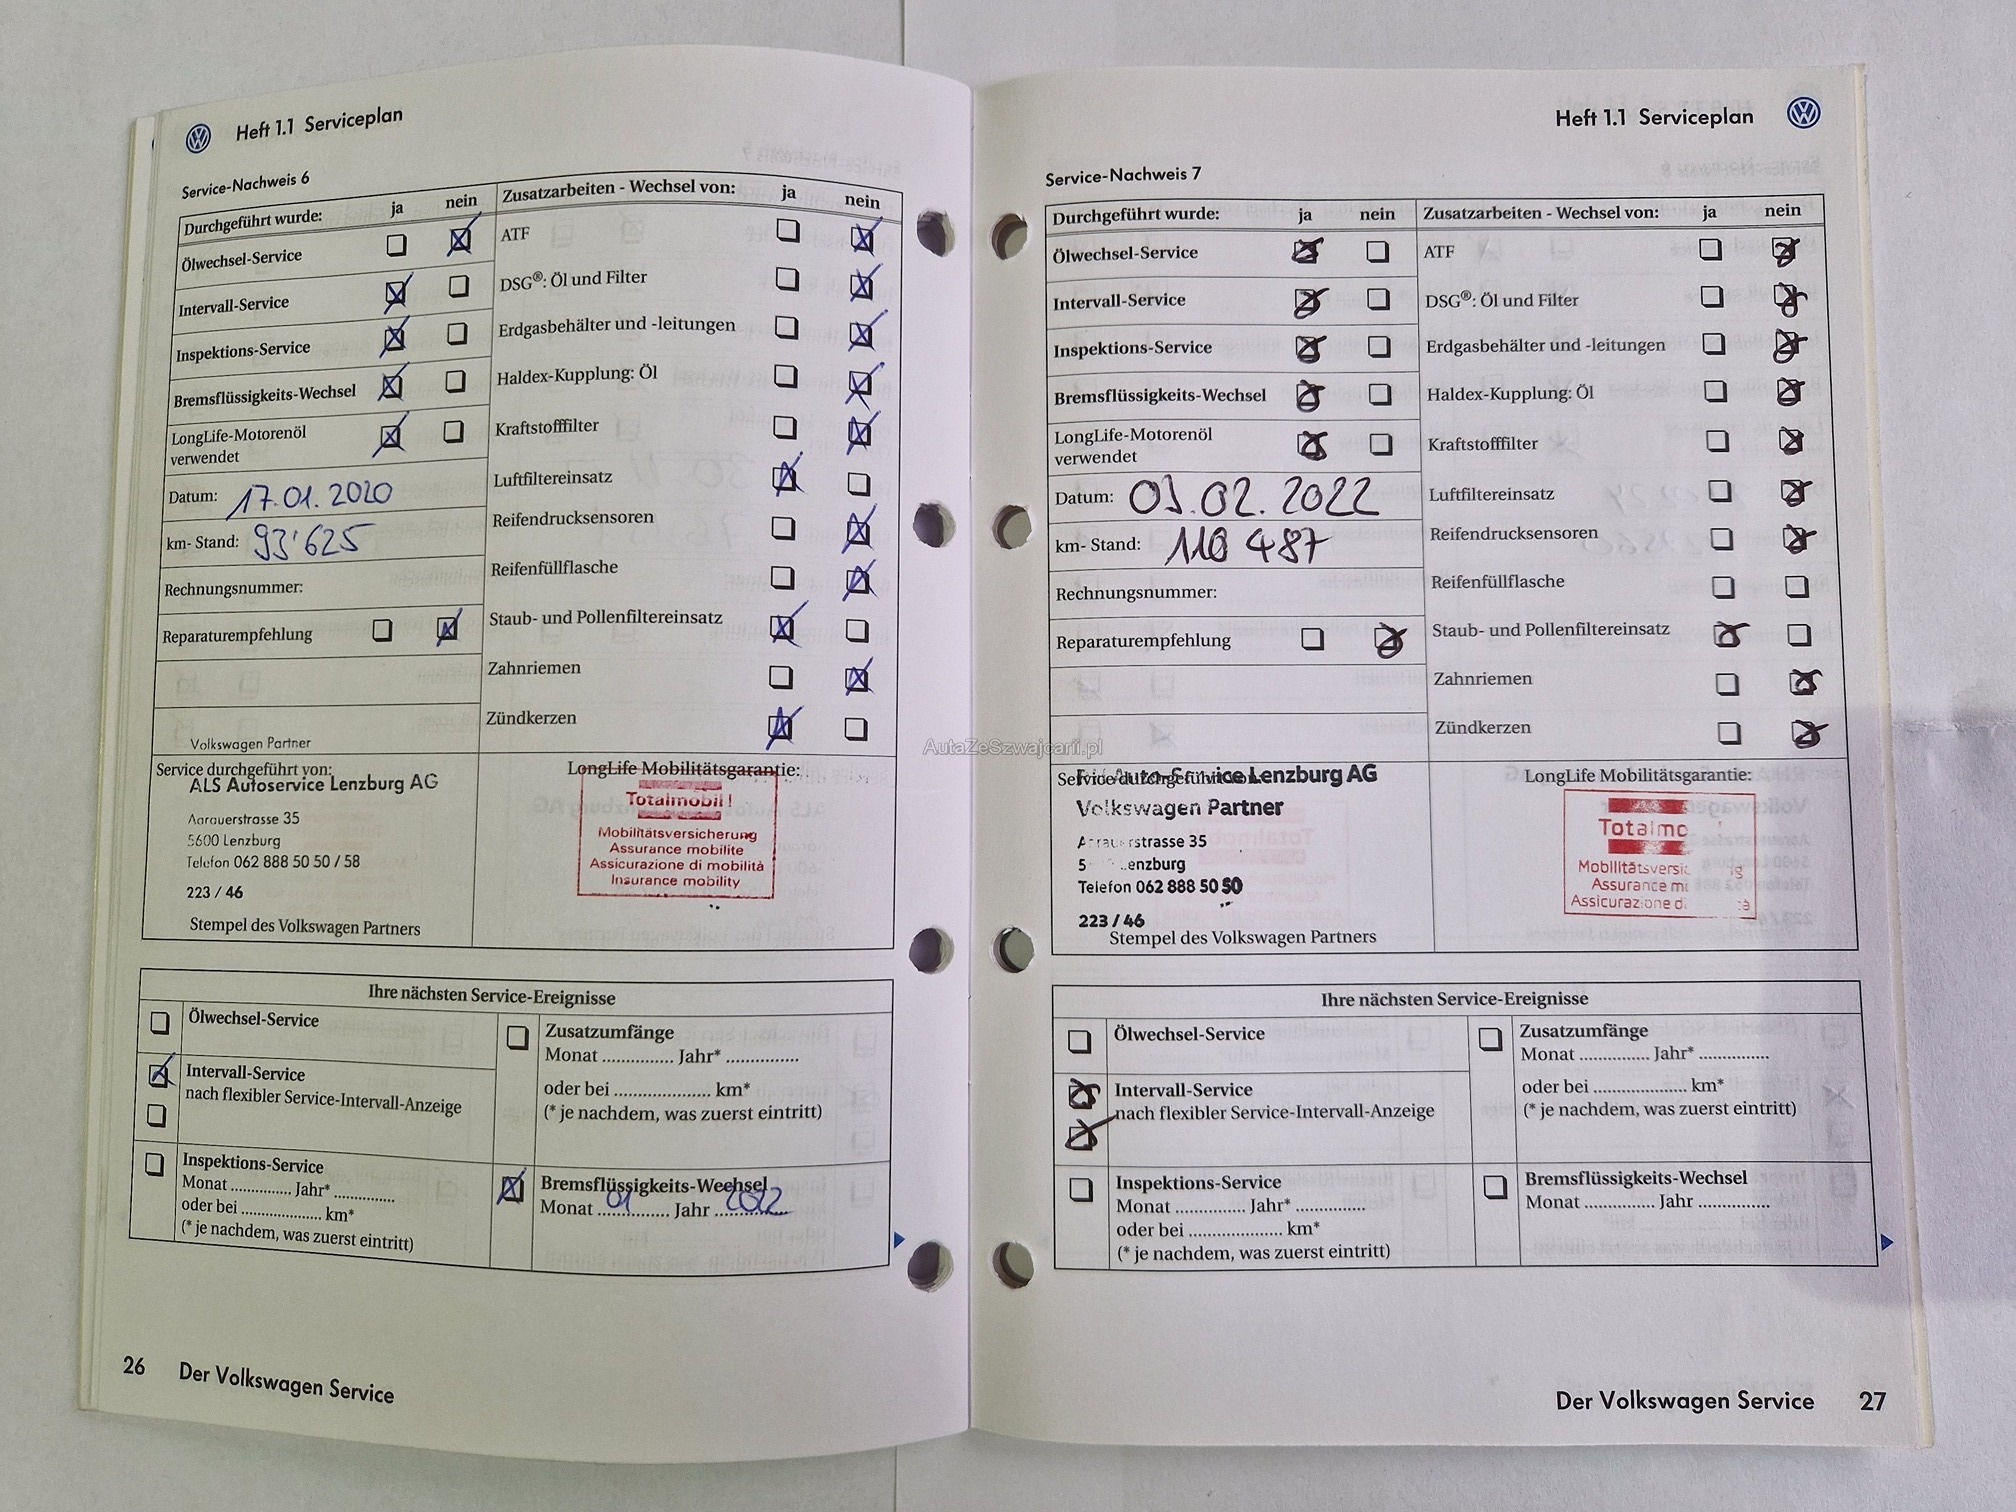 Heft 1.1 Serviceplan
Service-Nachweis 6
Durchgeführt wurde: ja nein
Ölwechsel-Service
Intervall-Service
Inspektions-Service
Bremsflüssigkeits-Wechsel
LongLife-Motorenöl
verwendet
Datum: 17.01.2020
km- Stand: 93'625
Rechnungsnummer:
Reparaturempfehlung
Zusatzarbeiten - Wechsel von: ja nein
ATF
DSG®: Öl und Filter
Erdgasbehälter und -leitungen
Haldex-Kupplung: Öl
Kraftstofffilter
Luftfiltereinsatz
Reifendrucksensoren
Reifenfüllflasche
Staub- und Pollenfiltereinsatz
Zahnriemen
Zündkerzen
Volkswagen Partner
Service durchgeführt von:
ALS Autoservice Lenzburg AG
Aarauerstrasse 35
5600 Lenzburg
Telefon 062 888 50 50 / 58
223 / 46
Stempel des Volkswagen Partners
LongLife Mobilitätsgarantie:
Totalmobil!
Mobilitätsversicherung
Assurance mobilite
Assicurazione di mobilità
Insurance mobility
Ihre nächsten Service-Ereignisse
Ölwechsel-Service
Intervall-Service
nach flexibler Service-Intervall-Anzeige
Inspektions-Service
Monat .............. Jahr* ..............
oder bei .................... km*
(* je nachdem, was zuerst eintritt)
Zusatzumfänge
Monat .............. Jahr* ..............
oder bei .................... km*
(* je nachdem, was zuerst eintritt)
Bremsflüssigkeits-Wechsel
Monat 01 Jahr 2022
26 Der Volkswagen Service
Heft 1.1 Serviceplan
Service-Nachweis 7
Durchgeführt wurde: ja nein
Ölwechsel-Service
Intervall-Service
Inspektions-Service
Bremsflüssigkeits-Wechsel
LongLife-Motorenöl
verwendet
Datum: 02.2022
km- Stand: 110 487
Rechnungsnummer:
Reparaturempfehlung
Zusatzarbeiten - Wechsel von: ja nein
ATF
DSG®: Öl und Filter
Erdgasbehälter und -leitungen
Haldex-Kupplung: Öl
Kraftstofffilter
Luftfiltereinsatz
Reifendrucksensoren
Reifenfüllflasche
Staub- und Pollenfiltereinsatz
Zahnriemen
Zündkerzen
AutaZeSzwajcarii.pl
Service durchgeführt von:
Auto-Service Lenzburg AG
Volkswagen Partner
Aarauerstrasse 35
Lenzburg
Telefon 062 888 50 50
223 / 46
Stempel des Volkswagen Partners
LongLife Mobilitätsgarantie:
Totalmo
Mobilitätsversic ng
Assurance m
Assicurazione d
Ihre nächsten Service-Ereignisse
Ölwechsel-Service
Intervall-Service
nach flexibler Service-Intervall-Anzeige
Inspektions-Service
Monat .............. Jahr* ..............
oder bei .................... km*
(* je nachdem, was zuerst eintritt)
Zusatzumfänge
Monat .............. Jahr* ..............
oder bei .................... km*
(* je nachdem, was zuerst eintritt)
Bremsflüssigkeits-Wechsel
Monat .............. Jahr ..............
Der Volkswagen Service 27